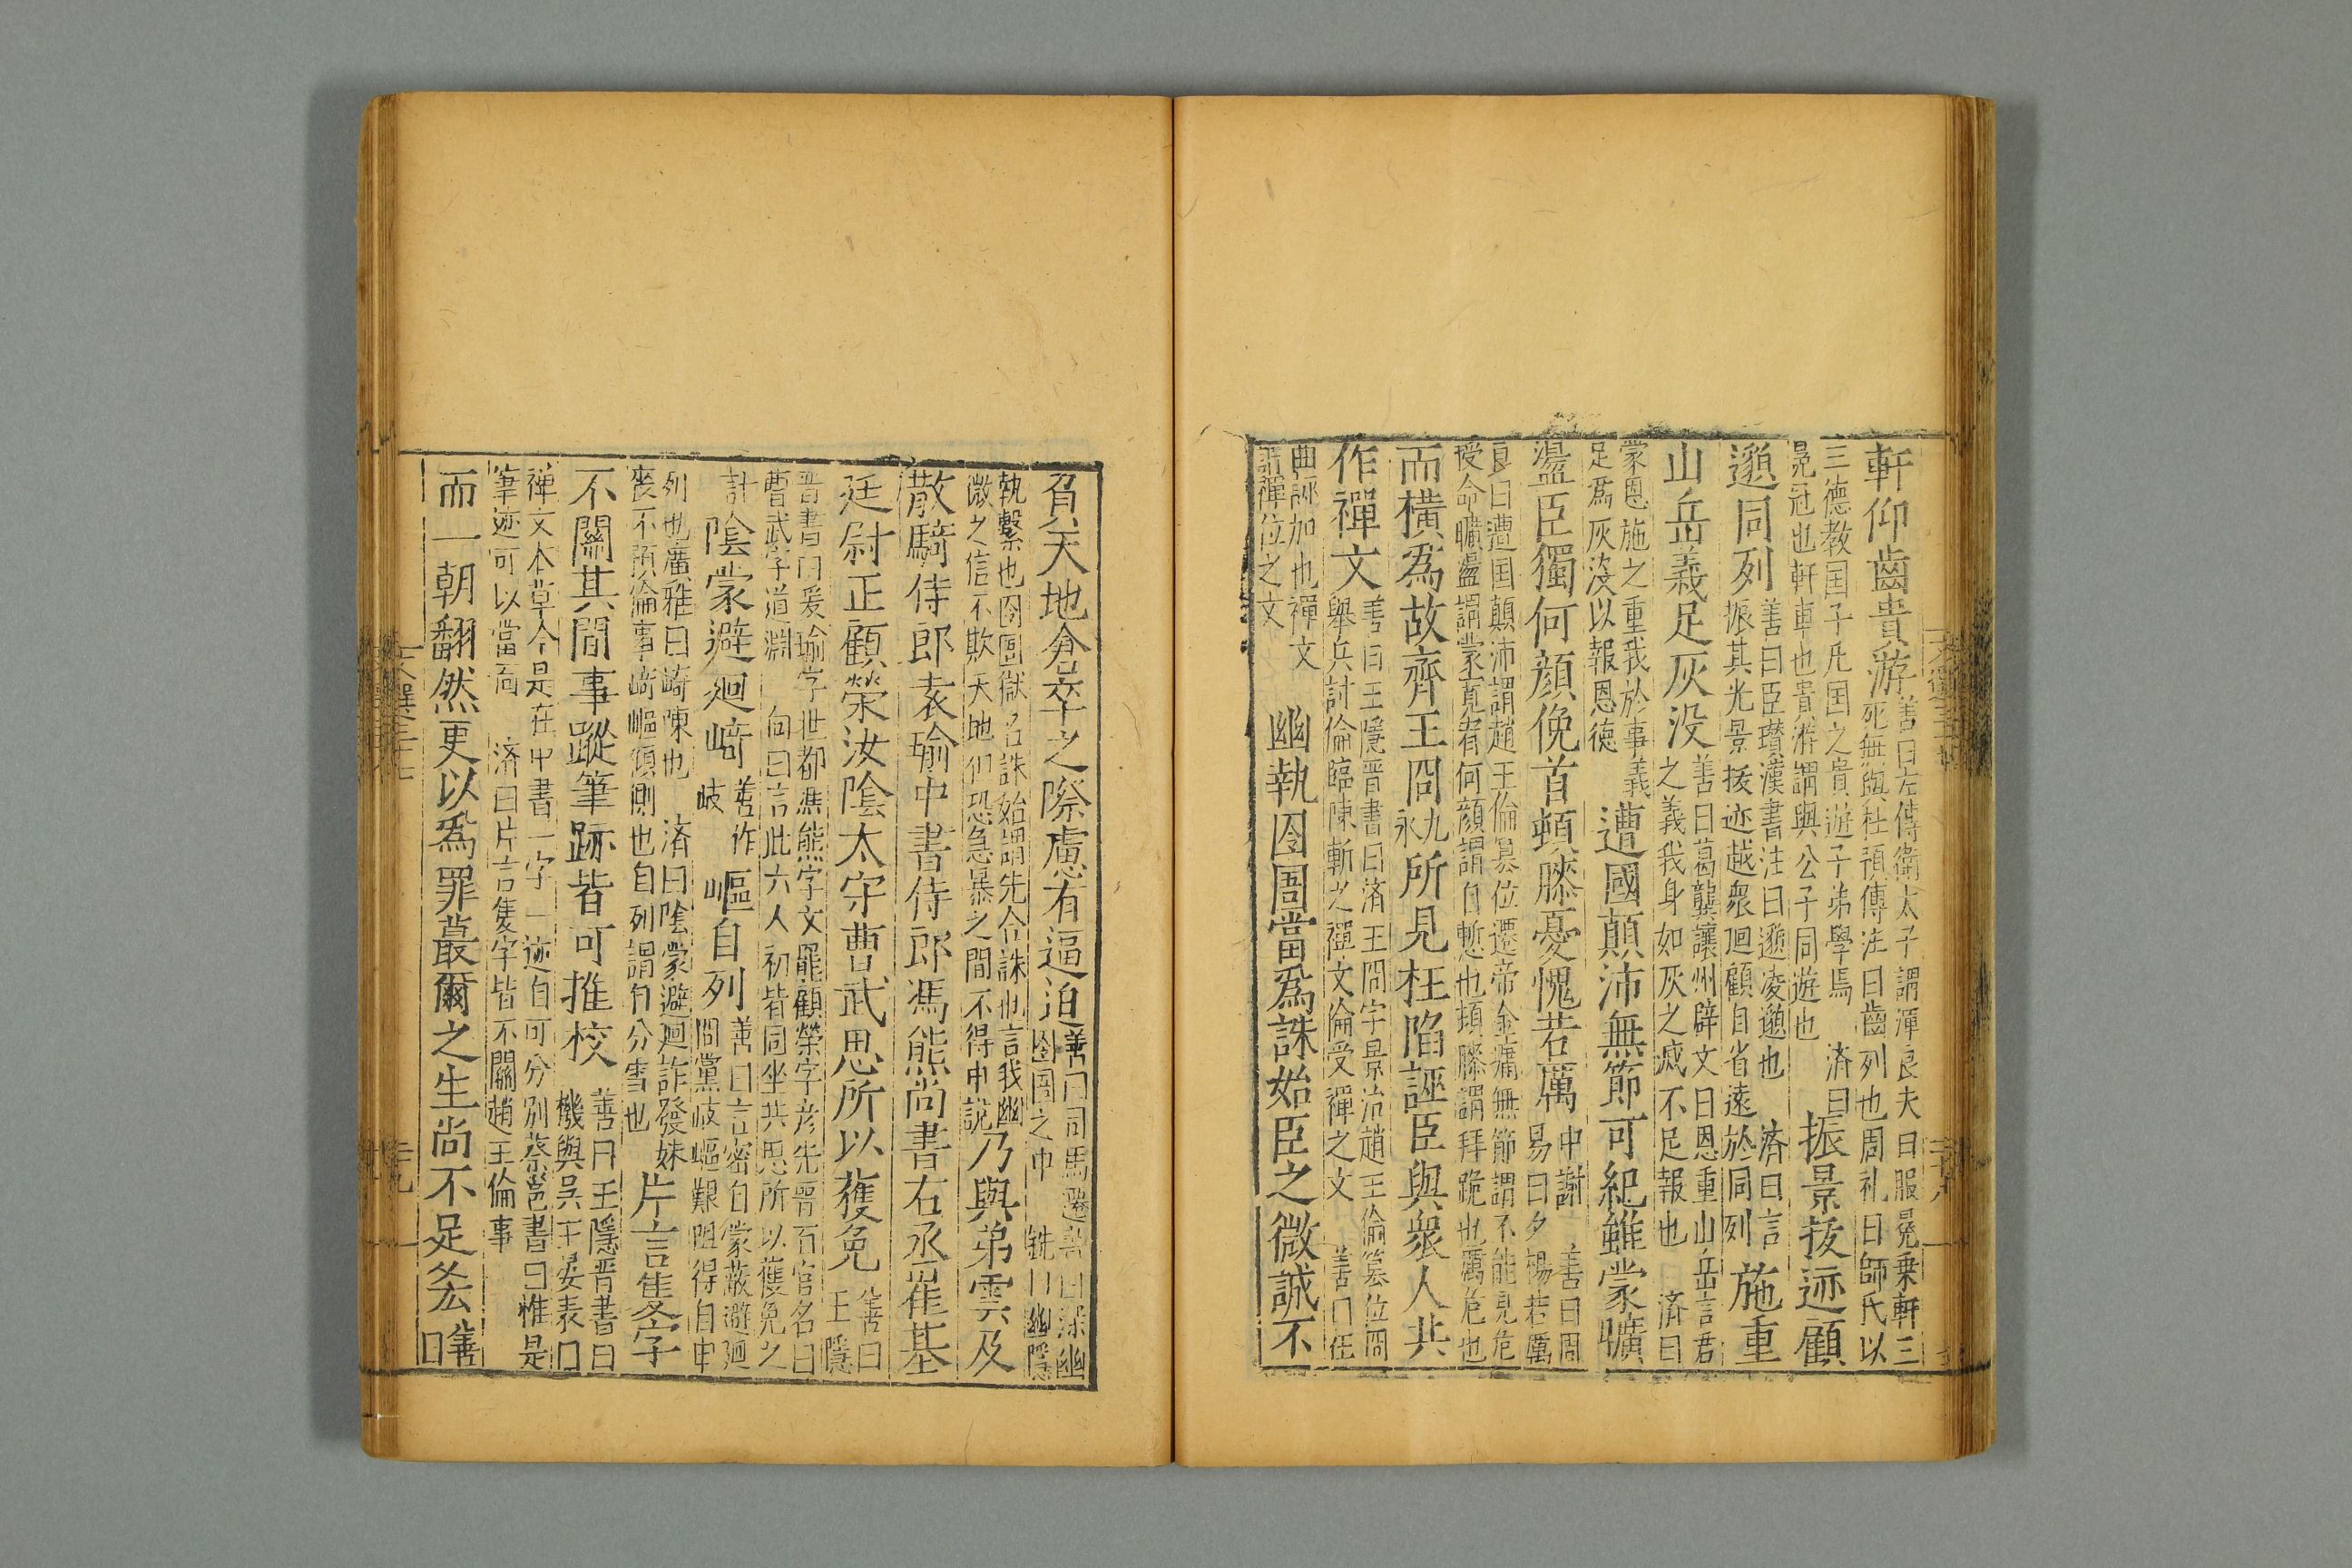 軒仰齒貴游善曰左傳衛太子謂渾良夫曰服冕乗軒三
死無與杜預傳注曰齒列也周礼曰師氏以
三德教国子凡国之貴遊子弟學焉 済曰
冕冠也軒車也貴游謂與公子同遊也
振景拔迹顧
邈同列善曰臣瓉漢書注曰邈凌邈也 済曰言
振其光景拔迹越衆迴顧自省遠於同列
施重
山岳義足灰没善曰葛龔讓州辟文曰恩重山岳言君
之義我身如灰之滅不足報也 済曰
蒙恩施之重我於事義
足為灰没以報恩德
遭國顛沛無節可紀雖蒙曠
盪臣獨何顔俛首頓膝憂愧若厲中謝 善曰周
易曰夕惕若厲
良曰遭国顛沛謂趙王倫篡位遷帝金墉無節謂不能見危
受命曠盪謂蒙寬宥何顔謂自慙也頓膝謂拜跪也厲危也
而横為故齊王冏九永所見枉陷誣臣與衆人共
作禪文善曰王隱晋書曰済王冏字景治趙王倫篡位冏
舉兵討倫臨陳斬之禪文倫受禪之文 善曰枉
曲誣加也禪文
謂禪位之文
幽執囹圄當為誅始臣之微誠不
負天地倉卒之際慮有逼迫善曰司馬遷書曰深幽
囹圄之中 銑曰幽隱
執繫也囹圄獄名誅始謂先合誅也言我幽
微之信不欺天地但恐急暴之間不得申說
乃與弟雲及
散騎侍郎袁瑜中書侍郎馮熊尚書右丞崔基
廷尉正顧榮汝陰太守曹武思所以獲免善曰
王隱
晋書曰爰瑜字世都馮熊字文羆顧榮字彦先晋百官名曰
曹武字道淵 向曰言此六人初皆同坐共思所以獲免之
計
陰蒙避廻﨑善作岐嶇自列善曰言密自蒙蔽避廻
冏黨岐嶇艱阻得自申
列也廣雅曰﨑陳也 済曰陰蒙避廻詐發妹
喪不預倫事﨑嶇傾側也自列謂自分雪也
片言隻字
不關其間事蹤筆跡皆可推校善曰王隱晋書曰
機與吳王晏表曰
禪文本草今是在中書一字一迹自可分別蔡邕書曰惟是
筆迹可以當面 済曰片言隻字皆不關趙王倫事
而一朝翻然更以為罪蕞爾之生尚不足𠫤善曰